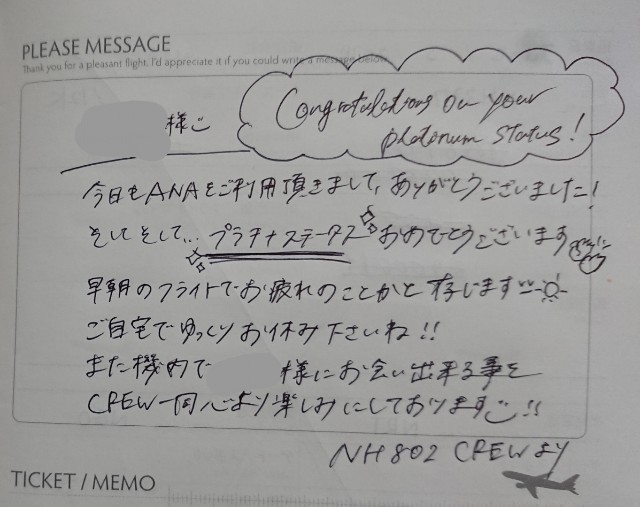 PLEASE MESSAGE
Thank you for a pleasant flight. I'd appreciate it if you could write a message below.
Congratulations on your
platonum status!
様に
今日もANAをご利用頂きまして、ありがとうございました!
そして そして... プラチナステータスおめでとうございます
早朝のフライトでお疲れのことかと存じます
ご自宅でゆっくりお休み下さいね!!
また機内で 様にお会い出来る事を
CREW一同心より楽しみにしております!!
NH802 CREWより
TICKET / MEMO